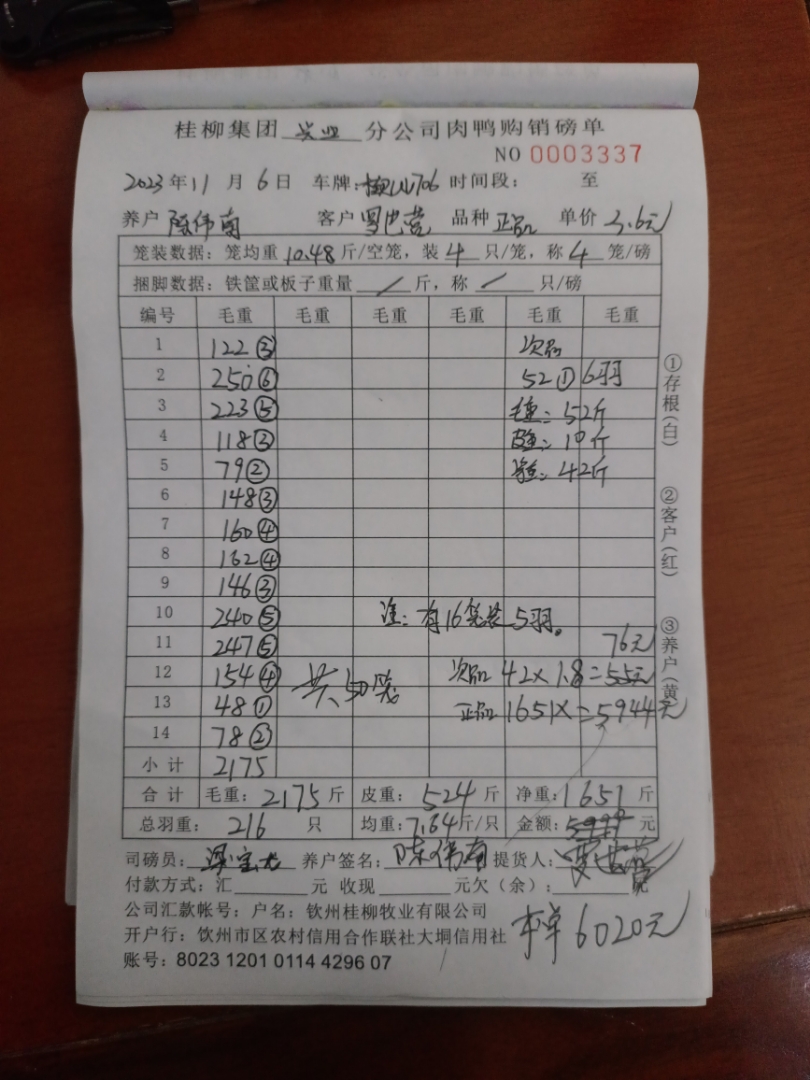 桂柳集团 兴业 分公司肉鸭购销磅单
NO 0003337
2023年11月6日 车牌: 706 时间段: 至
养户 陈伟南 客户 罗忠营 品种 正品 单价 3.6元
笼装数据: 笼均重 10.48 斤/空笼, 装 4 只/笼, 称 4 笼/磅
捆脚数据: 铁筐或板子重量 / 斤, 称 / 只/磅
编号 毛重 毛重 毛重 毛重 毛重 毛重
1 122③ 次品
2 250⑥ 52① 6羽
3 223⑤ 毛重: 52斤
4 118③ 皮重: 10斤
5 79② 净重: 42斤
6 148③
7 160④
8 162④
9 146③
10 240⑤ 注: 有16笼装5羽。
11 247⑤ 76元
12 154④ 共50笼 次品 42×1.8=55元
13 48① 正品 1651×=5944元
14 78②
小计 2175
合计 毛重: 2175斤 皮重: 524斤 净重: 1651斤
总羽重: 216 只 均重: 7.64斤/只 金额: 元
司磅员: 养户签名: 陈伟南 提货人:
付款方式: 汇 元 收现 元欠(余): 元
公司汇款帐号: 户名: 钦州桂柳牧业有限公司
开户行: 钦州市区农村信用合作联社大垌信用社
账号: 8023 1201 0114 4296 07
本单6020元
①存根(白)
②客户(红)
③养户(黄)